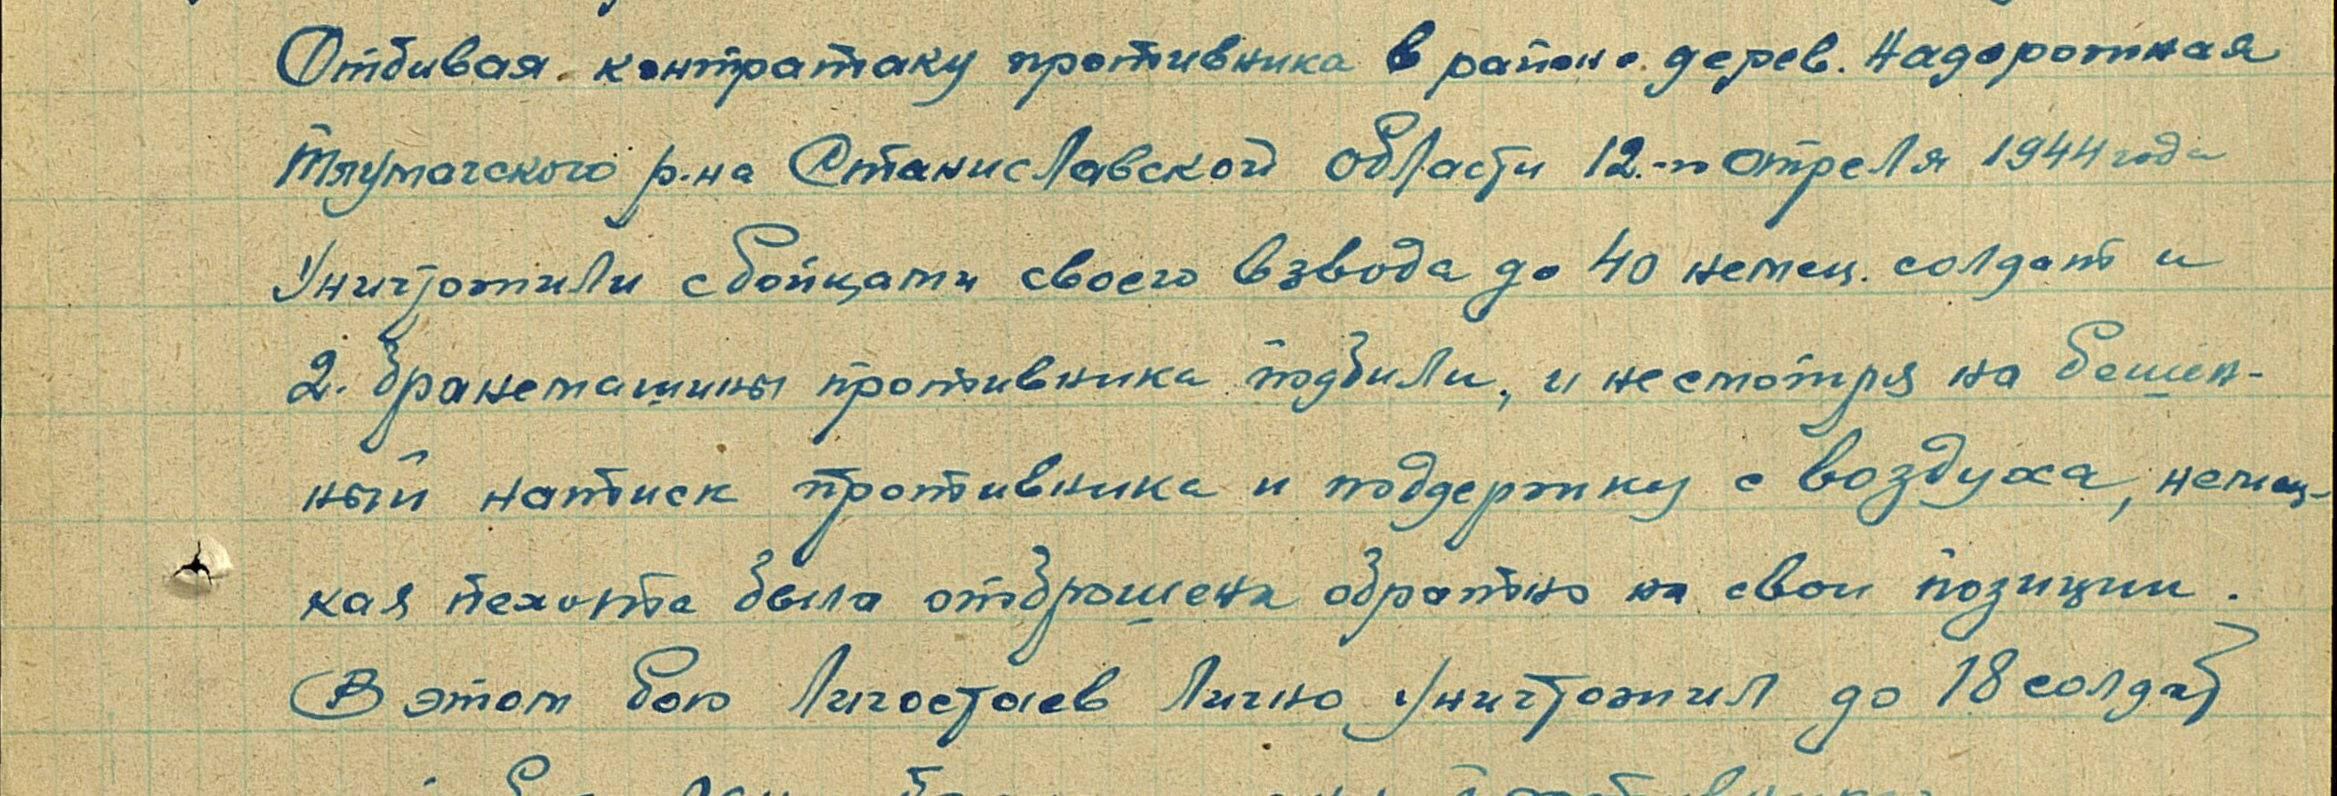 Отбивая контратаку противника в районе дерев. Надорожная
Тлумачского р-на Станиславской области 12-го Апреля 1944 года
Уничтожили с бойцами своего взвода до 40 немец. солдат и
2. бранемашины противника подбили, и несмотря на бешен-
ный натиск противника и поддержку с воздуха, немец-
кая пехота была отброшена обратно на свои позиции.
В этом бою Лигостаев Лично Уничтожил до 18 солдат